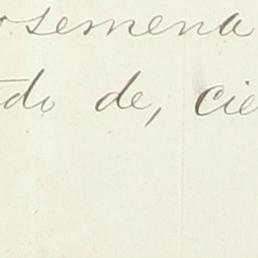 osemena
do de, cie